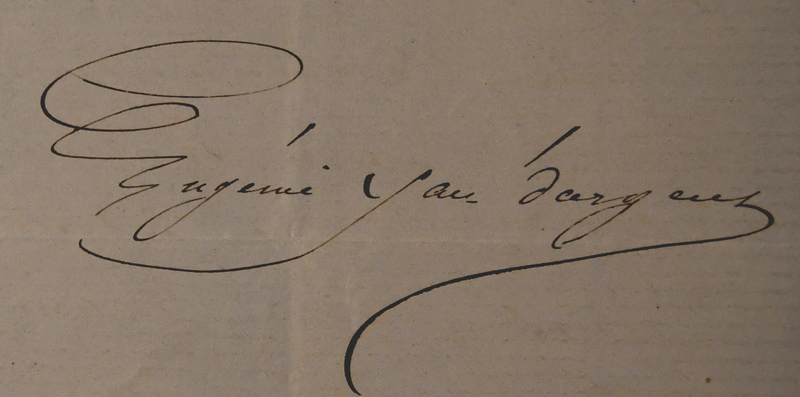 Eugénie Yan' dargent